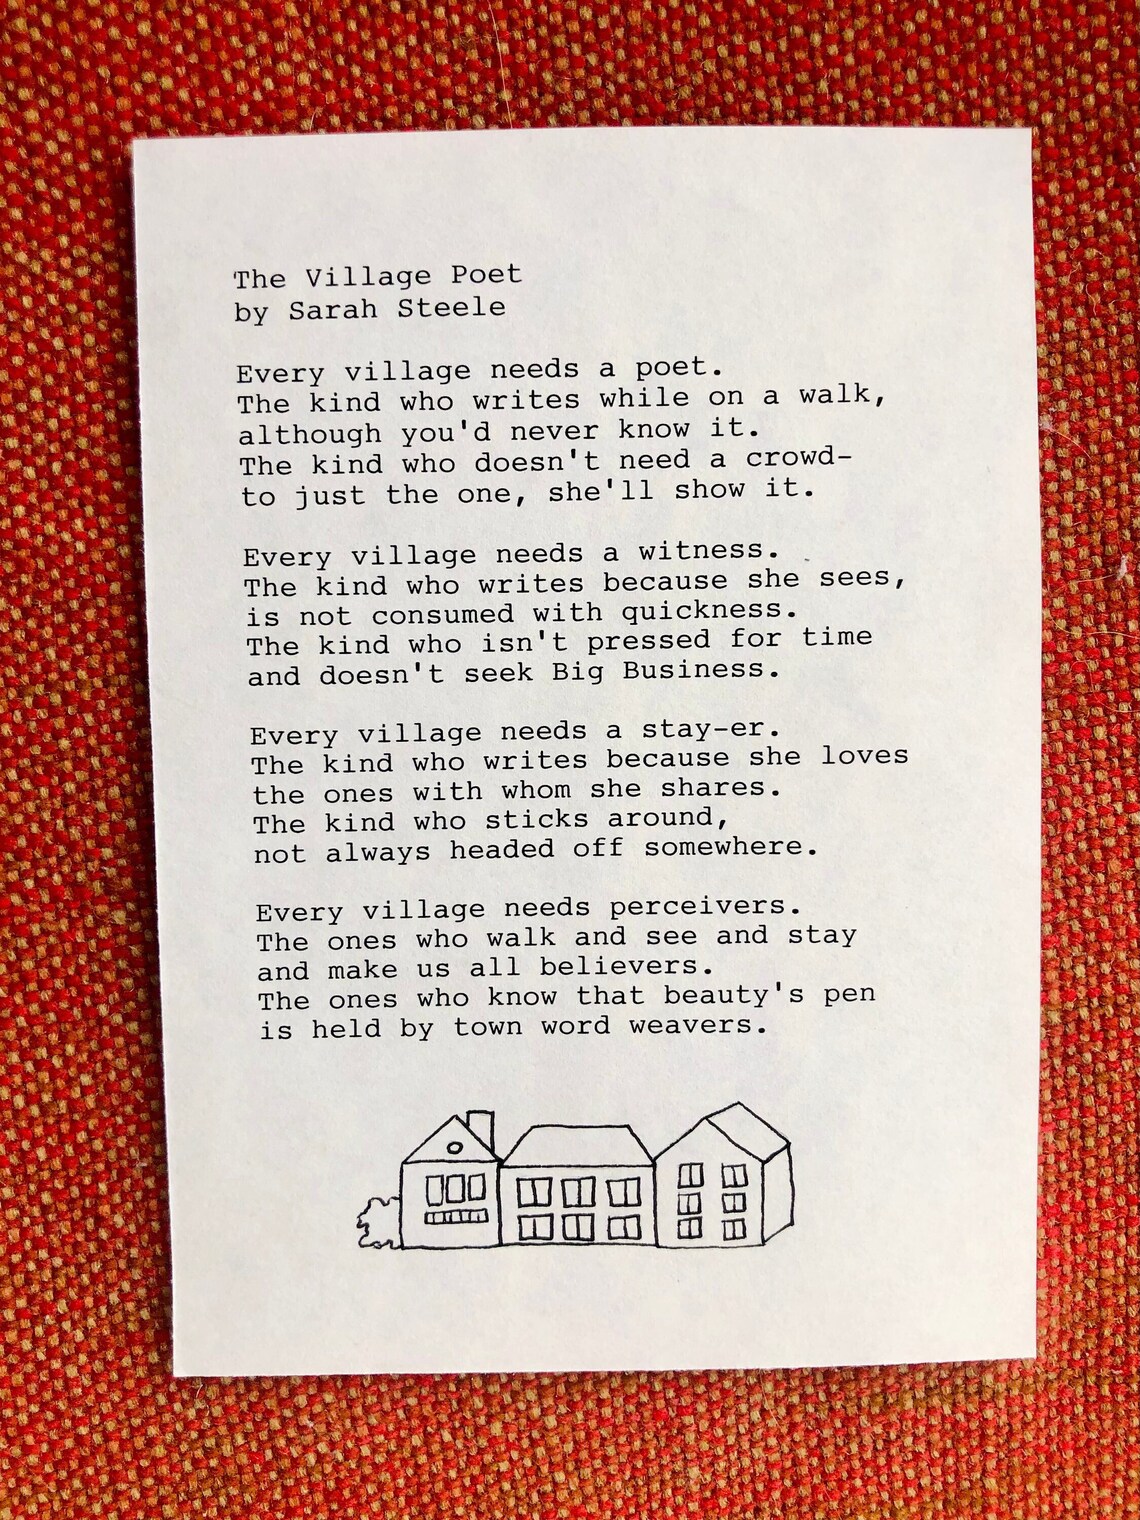 The Village Poet
by Sarah Steele
Every village needs a poet.
The kind who writes while on a walk,
although you'd never know it.
The kind who doesn't need a crowd-
to just the one, she'll show it.
Every village needs a witness.
The kind who writes because she sees,
is not consumed with quickness.
The kind who isn't pressed for time
and doesn't seek Big Business.
Every village needs a stay-er.
The kind who writes because she loves
the ones with whom she shares.
The kind who sticks around,
not always headed off somewhere.
Every village needs perceivers.
The ones who walk and see and stay
and make us all believers.
The ones who know that beauty's pen
is held by town word weavers.